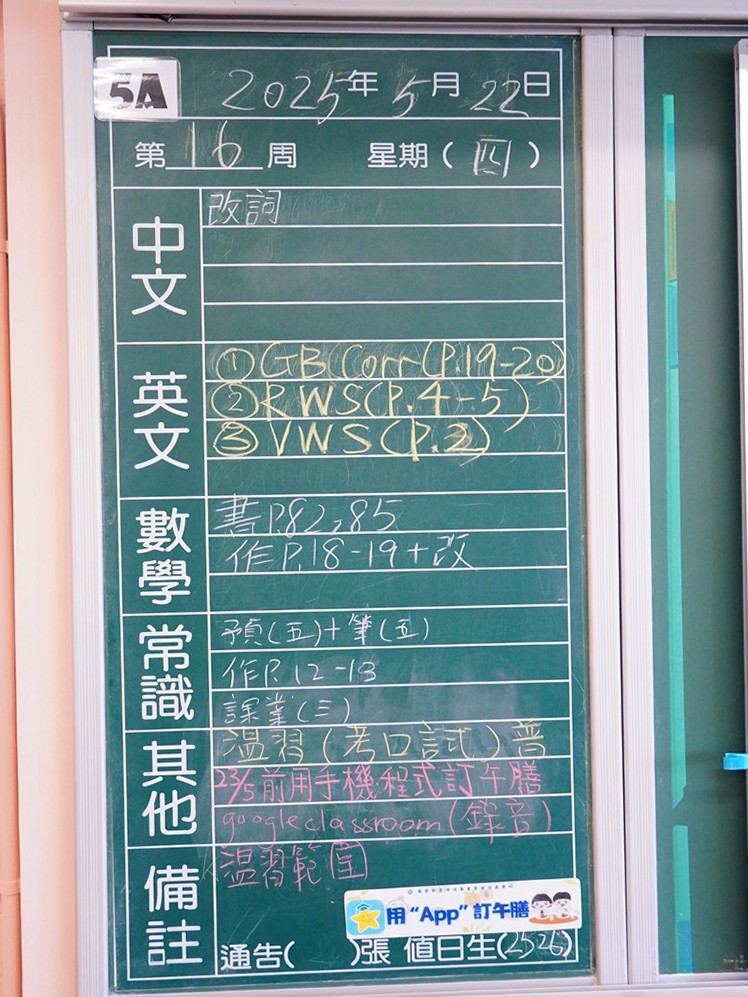 5A
2025年5月22日
第16周 星期(四)
中文
改詞
英文
①GB Corr(P.19-20)
②RWS(P.4-5)
③VWS(P.2)
數學
書P.82,85
作P.18-19+改
常識
預(五)+筆(五)
作P.12-13
課業(三)
其他
温習(考口試)普
23/5前用手機程式訂午膳
google classroom(錄音)
備註
温習範圍
用“App”訂午膳
通告( )張 值日生(25 26)